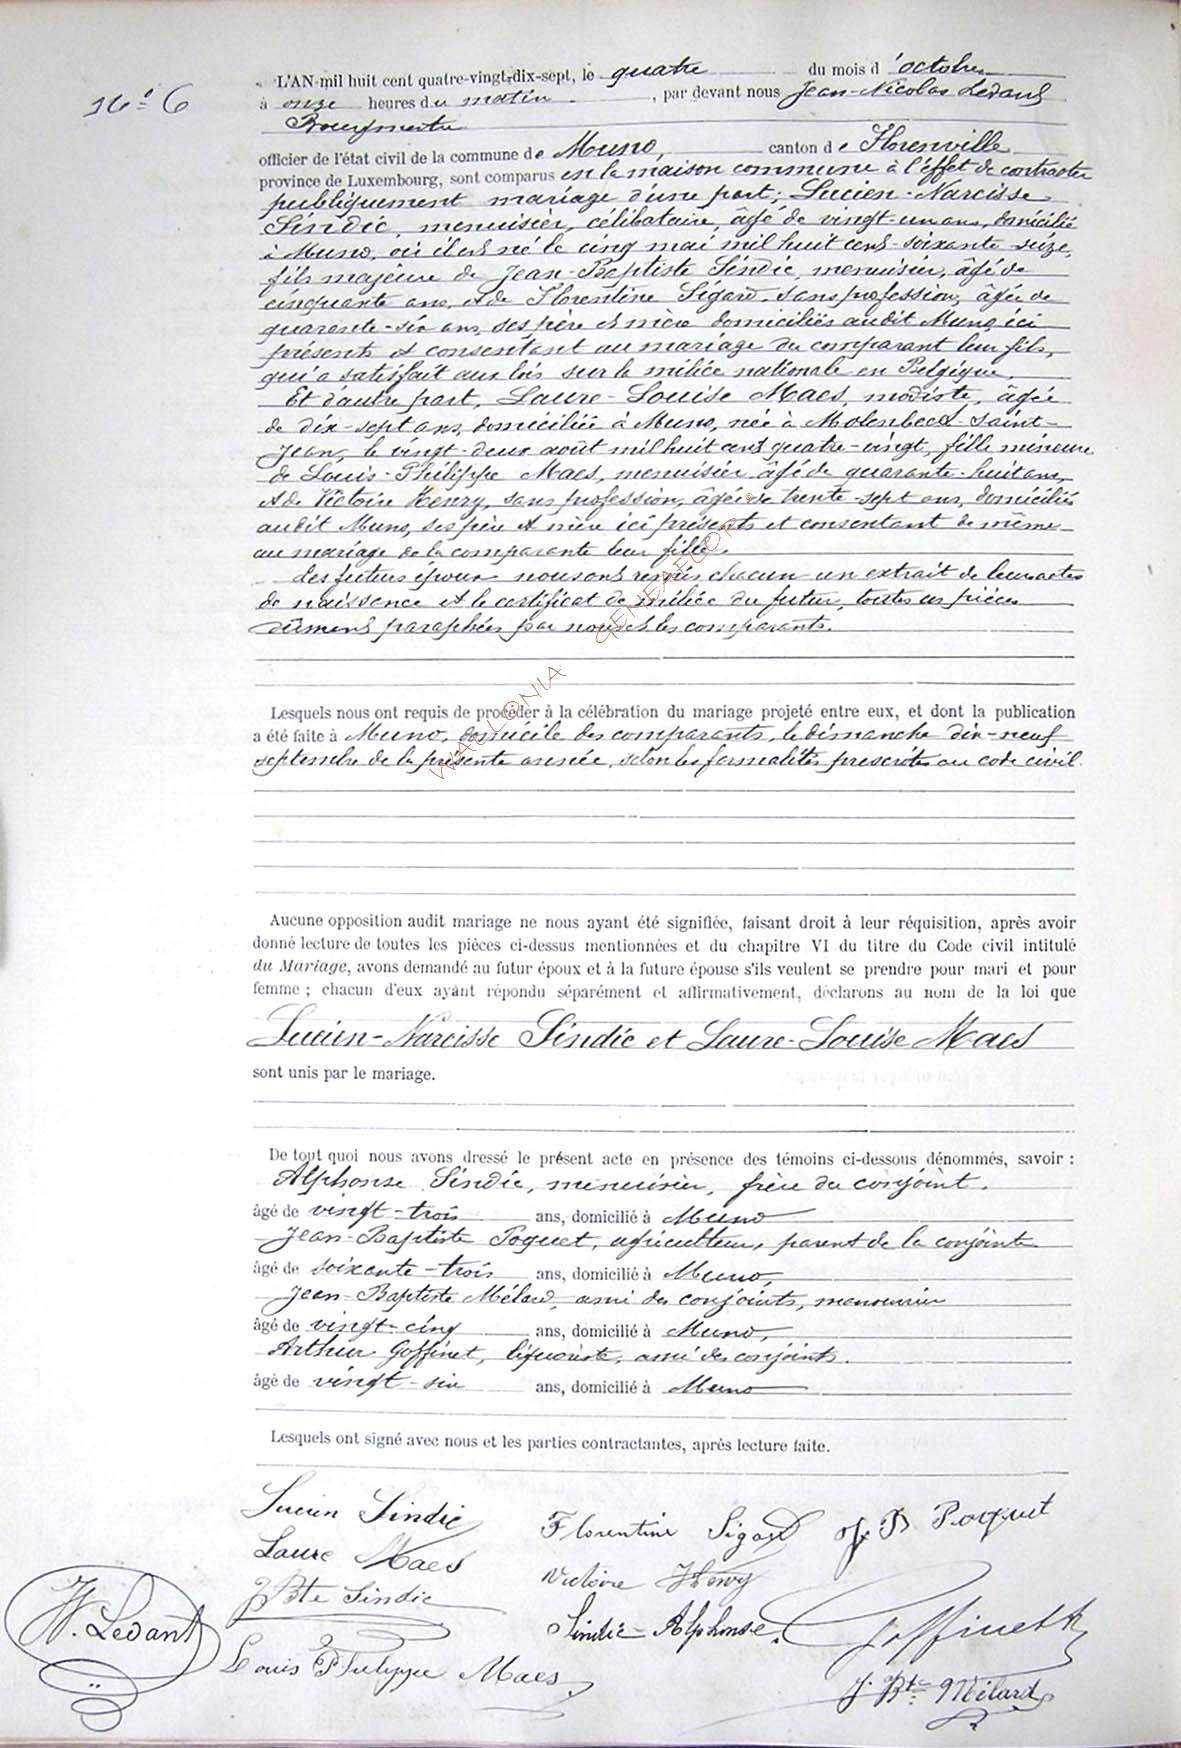 N° 6
L'AN mil huit cent quatre-vingt-dix-sept, le quatre du mois d'octobre
à onze heures du matin, par devant nous Jean-Nicolas Ledant
Bourgmestre
officier de l'état civil de la commune de Muno, canton de Florenville
province de Luxembourg, sont comparus en la maison commune à l'effet de contracter
publiquement mariage d'une part; Lucien-Narcisse
Sindic, menuisier, célibataire, âgé de vingt-un ans, domicilié
à Muno, où il est né le cinq mai mil huit cent-soixante-seize,
fils majeure de Jean-Baptiste Sindic, menuisier, âgé de
cinquante ans, et de Florentine Sigard, sans profession, âgée de
quarante-six ans, ses père et mère domiciliés audit Muno, ici
présents et consentant au mariage du comparant leur fils,
qui a satisfait aux lois sur la milice nationale en Belgique.
Et d'autre part, Laure-Louise Maes, modiste, âgée
de dix-sept ans, domiciliée à Muno, née à Molenbeek-Saint-
Jean, le vingt-deux août mil huit cent quatre-vingt, fille mineure
de Louis-Philippe Maes, menuisier âgé de quarante-huit ans,
et de Victoire Henry, sans profession, âgée de trente-sept ans, domiciliés
audit Muno, ses père et mère ici présents et consentant de même
au mariage de la comparante leur fille.
Les futurs époux nous ont remis chacun un extrait de leurs actes
de naissance et le certificat de milice du futur, toutes ces pièces
dûment paraphées par nous et les comparants.
WALLONIA GENEAECOR.
Lesquels nous ont requis de procéder à la célébration du mariage projeté entre eux, et dont la publication
a été faite à Muno, domicile des comparants, le dimanche dix-neuf
septembre de la présente année, selon les formalités prescrites au code civil.
Aucune opposition audit mariage ne nous ayant été signifiée, faisant droit à leur réquisition, après avoir
donné lecture de toutes les pièces ci-dessus mentionnées et du chapitre VI du titre du Code civil intitulé
du Mariage, avons demandé au futur époux et à la future épouse s'ils veulent se prendre pour mari et pour
femme ; chacun d'eux ayant répondu séparément et affirmativement, déclarons au nom de la loi que
Lucien-Narcisse Sindic et Laure-Louise Maes
sont unis par le mariage.
De tout quoi nous avons dressé le présent acte en présence des témoins ci-dessous dénommés, savoir :
Alphonse Sindic, menuisier, frère du conjoint.
âgé de vingt-trois ans, domicilié à Muno
Jean-Baptiste Poquet, agriculteur, parent de la conjointe
âgé de soixante-trois ans, domicilié à Muno,
Jean-Baptiste Mélard, ami des conjoints, manouvrier
âgé de vingt-cinq ans, domicilié à Muno,
Arthur Goffinet, liquoriste, ami des conjoints.
âgé de vingt-six ans, domicilié à Muno
Lesquels ont signé avec nous et les parties contractantes, après lecture faite.
Lucien Sindic Florentine Sigard J B Poquet
Laure Maes Victoire Henry
J Bte Sindic Sindic-Alphonse. Goffinet A
N. Ledant
Louis Philippe Maes J. Bte Mélard